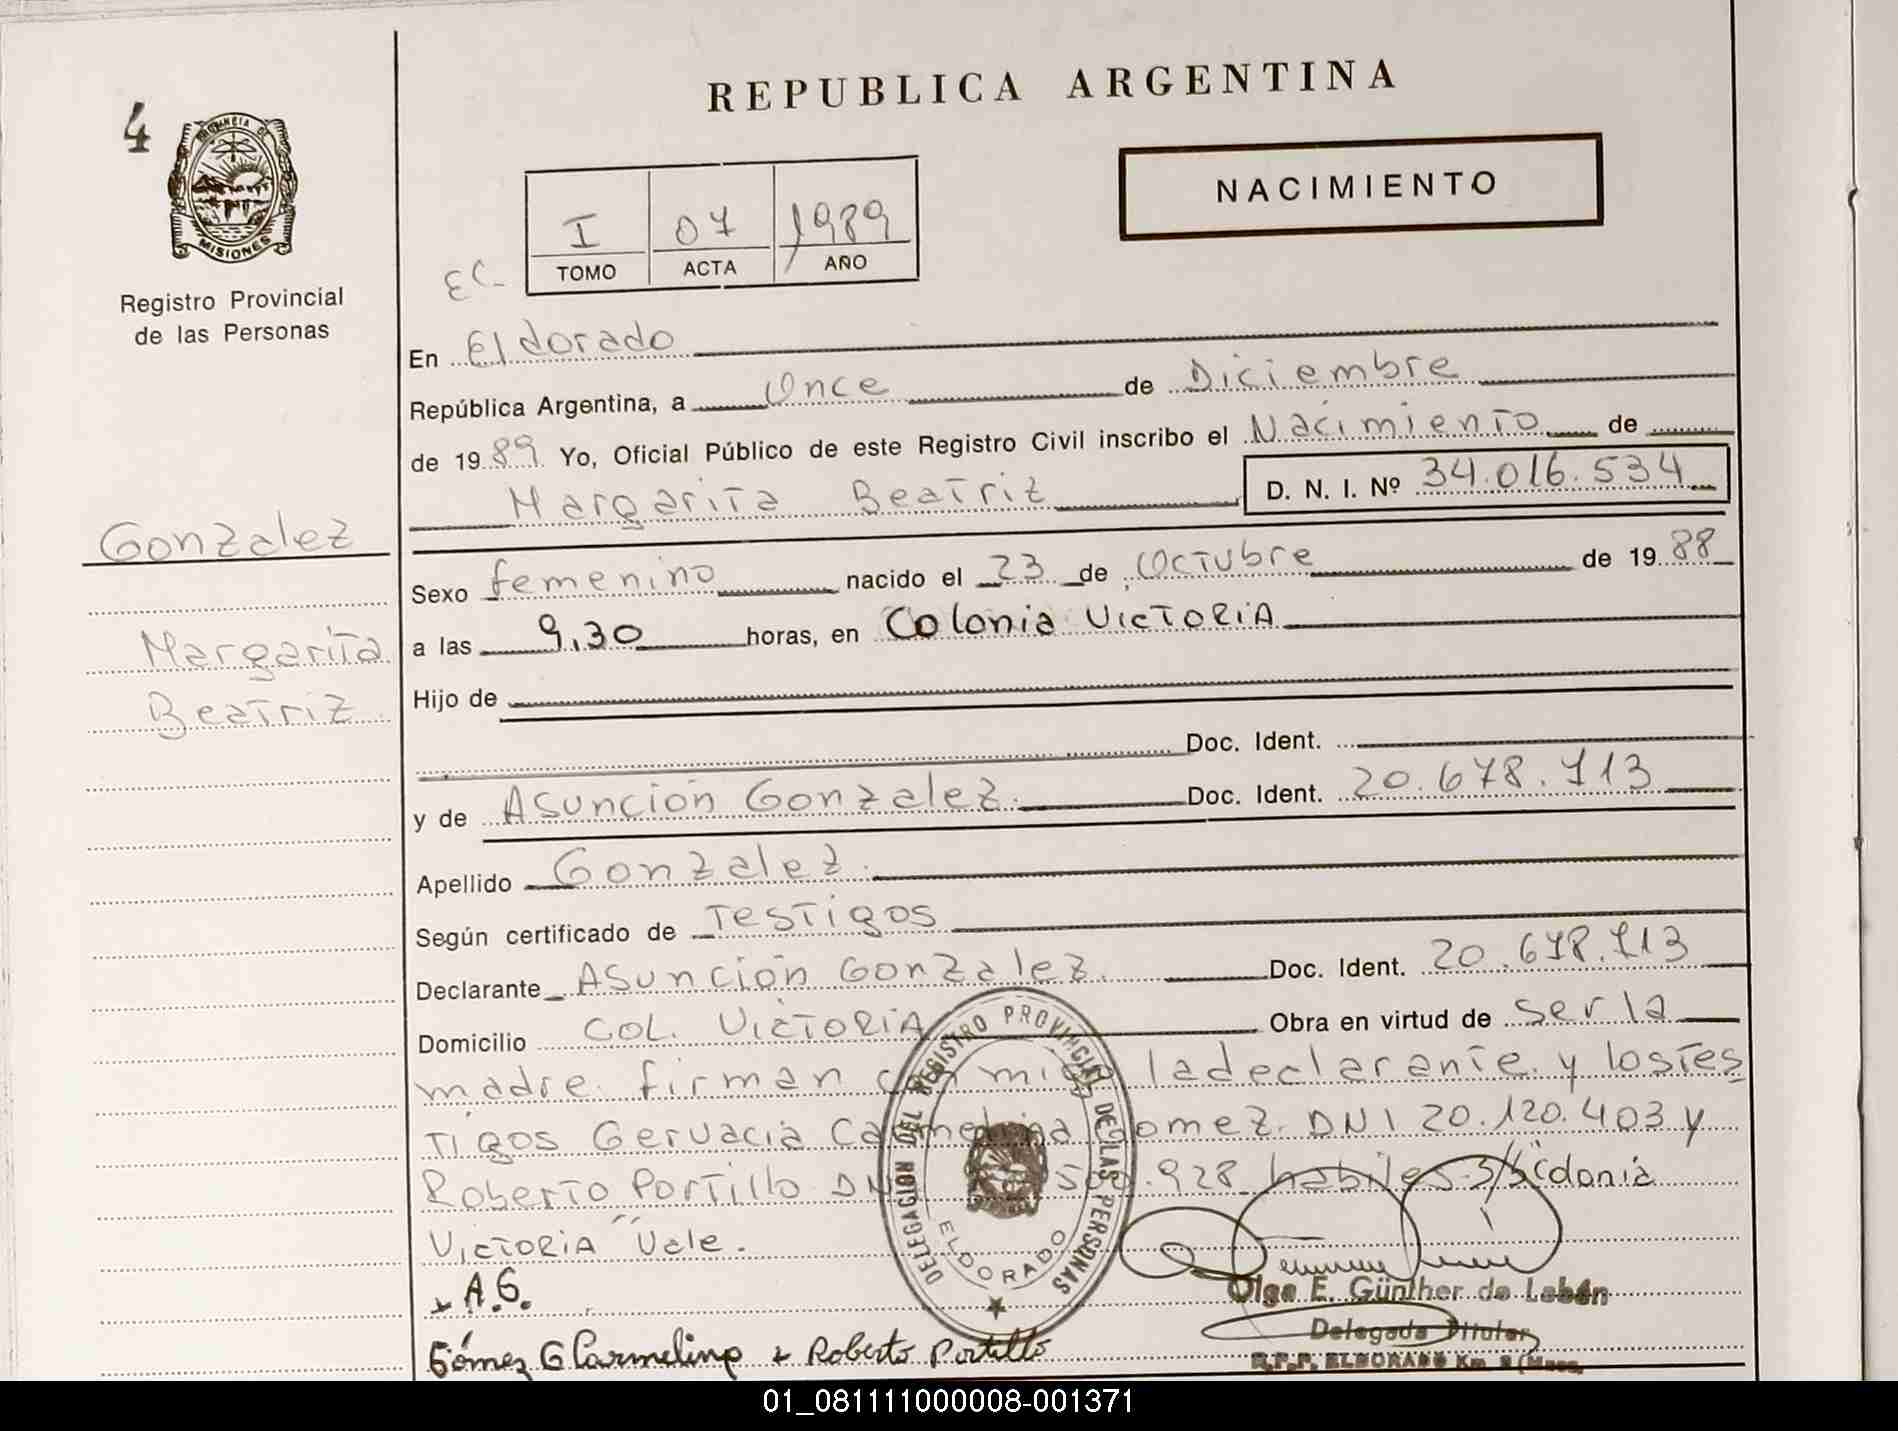 REPUBLICA ARGENTINA
4
PROVINCIA DE
MISIONES
Registro Provincial
de las Personas
NACIMIENTO
I 07 1989
TOMO ACTA AÑO
EC
En Eldorado
República Argentina, a Once de Diciembre
de 1989 Yo, Oficial Público de este Registro Civil inscribo el Nacimiento de
Margarita Beatriz D. N. I. Nº 34.016.534
Gonzalez
Margarita
Beatriz
Sexo femenino nacido el 23 de Octubre de 1988
a las 9,30 horas, en Colonia VICTORIA
Hijo de
Doc. Ident.
y de Asunción Gonzalez. Doc. Ident. 20.678.713
Apellido Gonzalez.
Según certificado de Testigos
Declarante Asunción Gonzalez. Doc. Ident. 20.678.713
Domicilio COL. VICTORIA Obra en virtud de ser la
madre. firman con migo la declarante y los tes
tigos Gervacia Carmelina Gomez. DNI 20.120.403 y
Roberto Portillo 928 habiles
VICTORIA "Vale.
A.G.
Gómez G Carmelina Roberto Portillo
DELEGACION DEL REGISTRO PROVINCIAL DE LAS PERSONAS
ELDORADO
Olga E. Günther de Lebén
Delegada Titular
R.P.P. ELDORADO Km.
01_081111000008-001371